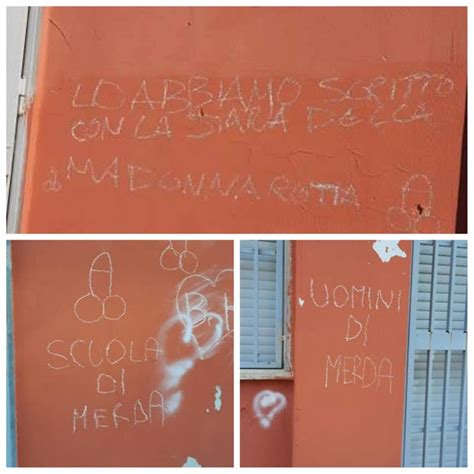 LO ABBIAMO SCRITTO
CON LA DELLA
MADONNA ROTTA
SCUOLA
DI
MERDA
UOMINI
DI
MERDA